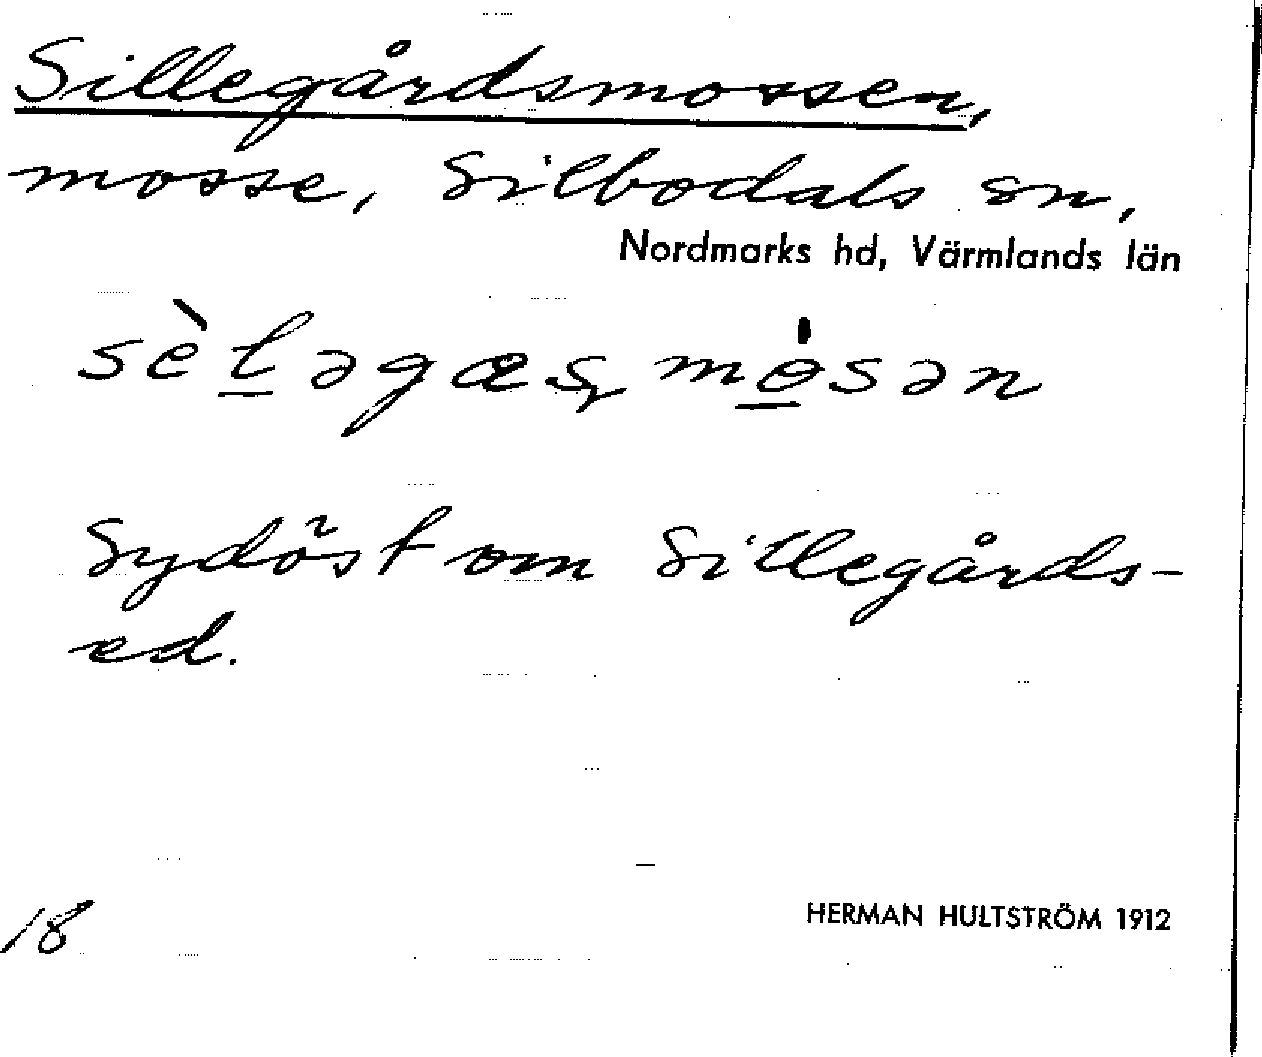 Sillegårdsmossen,
mosse, Silbodals sn,
Nordmarks hd, Värmlands län
sèl̲əgæʂmo̲̍sən
Sydöst om Sillegårds-
ed.
18
HERMAN HULTSTRÖM 1912